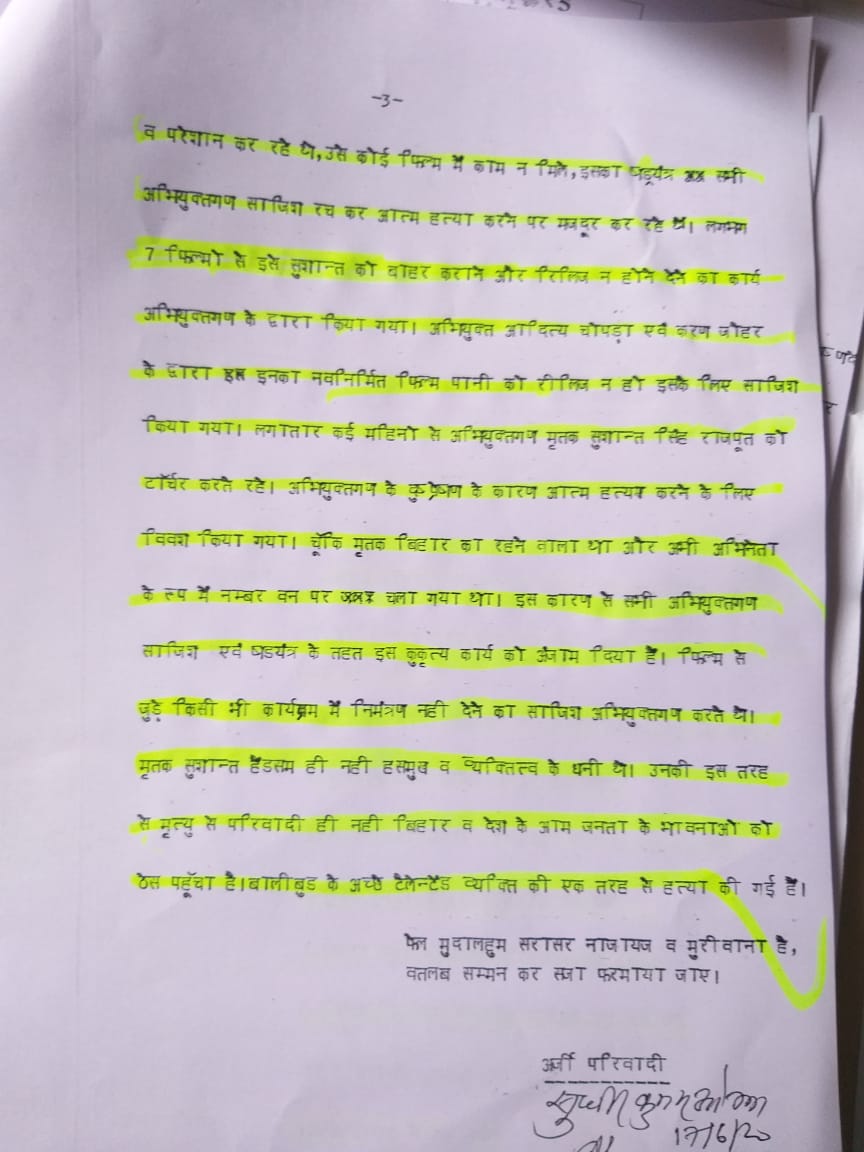 -3-
व परेशान कर रहे थे,उसे कोई फिल्म में काम न मिले,इसका षड्रयंत्र xx सभी
अभियुक्तगण साजिश रच कर आत्म हत्या करने पर मजबूर कर रहे थे। लगभग
7 फिल्मो से इसे सुशान्त को बाहर कराने और रिलिज न होने देने का कार्य
अभियुक्तगण के द्वारा किया गया। अभियुक्त आदित्य चोपड़ा एवं करण जोहर
के द्वारा इनका नवनिर्मित फिल्म पानी को रीलिज न हो इसके लिए साजिश
किया गया। लगातार कई महिनो से अभियुक्तगण मृतक सुशान्त सिंह राजपूत को
टॉर्चर करते रहे। अभियुक्तगण के कुप्रेरणा के कारण आत्म हत्या करने के लिए
विवश किया गया। चूँकि मृतक बिहार का रहने वाला था और अभी अभिनेता
के रूप में नम्बर वन पर चला गया था। इस कारण से सभी अभियुक्तगण
साजिश एवं षडयंत्र के तहत इस कुकृत्य कार्य को अंजाम दिया है। फिल्म से
जुड़े किसी भी कार्यक्रम में निमंत्रण नही देने का साजिश अभियुक्तगण करते थे।
मृतक सुशान्त हैडसम ही नही हसमुख व व्यक्तित्व के धनी थे। उनकी इस तरह
से मृत्यु से परिवादी ही नही बिहार व देश के आम जनता के भावनाओ को
ठेस पहूँचा है।बालीबुड के अच्छे टैलेन्टेड व्यक्ति की एक तरह से हत्या की गई है।
फेल मुदालहुम सरासर नाजायज व मुरीवाना है,
वतलब सम्मन कर सजा फरमाया जाए।
अर्जी परिवादी
सुधीर कुमार ओझा
17/6/20